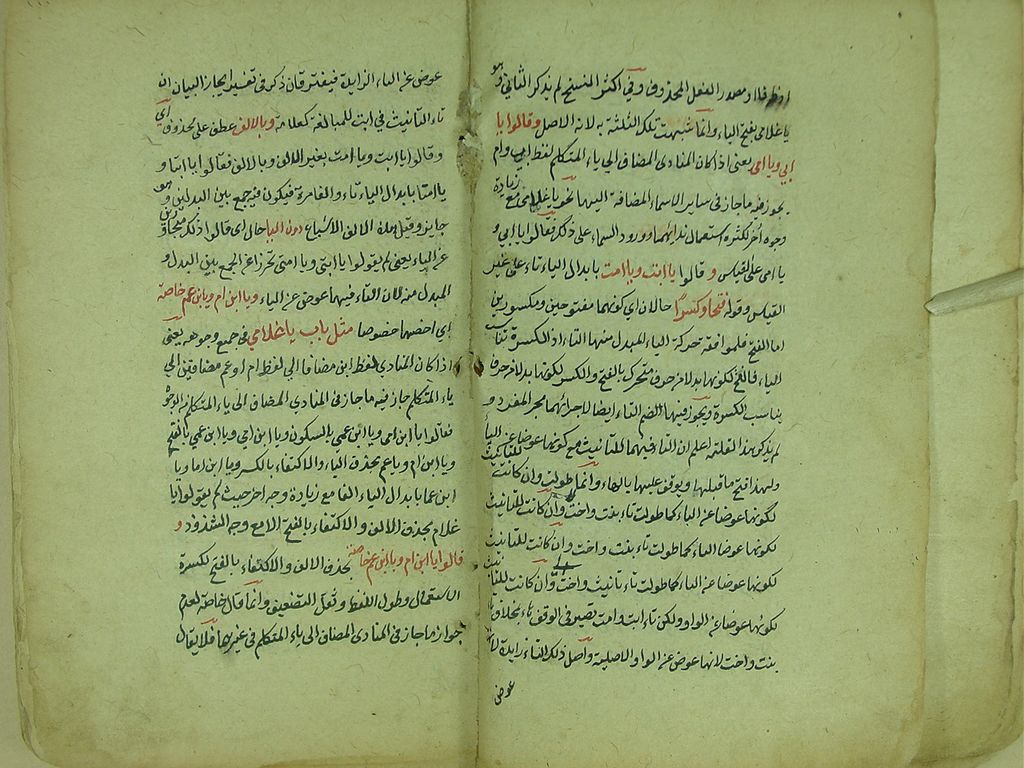 او ظرفا او مصدر الفعل المحذوف وفي اكثر النسخ لم يذكر الثاني وهو
يا غلامي بفتح الياء وانما شبهت تلك الثلثة به لانه الاصل وقالوا يا
ابي ويا امي يعنى اذا كان المنادى المضاف الى ياء المتكلم لفظ اب وام
يجوز فيه ما جاز في ساير الاسماء المضافة اليها نحو يا غلامى مع زيادة
وجوه أخر لكثرة استعمال ندائهما وورود السماء على ذلك فقالوا يا ابي و
يا امى على القياس و قالوا يا ابت ويا امت بابدال الياء تاء على غير
القياس وقوله فتحا وكسرا حالان اي كونهما مفتوحين ومكسورين
اما الفتح فلموافقة حركة الياء المبدل منها التاء اذ الكسرة تناسب
الياء فالفتح لكونها بدلا من حرف متحرك بالفتح والكسر لكونها بدلا من حرف
يناسب الكسرة ويجوز فيهما الضم التاء ايضا لاجرائهما مجر المفرد و
لم يذكر هذا لقلته اعلم ان التاء فيهما للتانيث مع كونها عوضا عن الياء
ولهذا فتح ما قبلها ويوقف عليها بالهاء وانما طولت وان كانت للتانيث
لكونها عوضا عن الياء كما طولت تاء بنت واخت وان كانت للتانيث
لكونها عوضا عن الياء كما طولت تاء بنت واخت وان كانت للتانيث
لكونها عوضا عن الياء كما طولت تاء تانيث واخت وان كانت للتانيث
لكونها عوضا عن الواو ولكن تاء ابت وامت تصير في الوقف هاء بخلاف تاء
بنت واخت لانها عوض عن الواو الاصلية واصل ذلك التاء زايدة لانها
عوض
عوض عن الياء الزايدة فيفترقان ذكر في تفسير ايجاز البيان ان
تاء التانيث في ابت للمبالغة كعلامة وبالالف عطف على محذوف اي
وقالوا يا ابت ويا امت بغير الالف وبالالف فقالوا يا ابتا و
يا امتا بابدال الياء تاء والفا مرة فيكون فيه جمع بين البدلين وهو
جايز وقيل هذه الالف للاشباع دون اليا حال اى قالوا ذلك متجاوزين
عن الياء يعنى لم يقولوا يا ابتي ويا امتى تحرزا عن الجمع بين البدل و
المبدل منه لان التاء فيهما عوض عن الياء ويا ابن ام ويا بن عم خاصة
اي اخصهما خصوصا مثل باب يا غلامي في جميع وجوهه يعنى
اذا كان المنادى لفظ ابن مضافا الى لفظ ام او عم مضافين الى
ياء المتكلم جاز فيه ما جاز في المنادى المضاف الى ياء المتكلم من الوجوه
فقالوا يا ابن امى ويا ابن عمي بالسكون ويا ابن امي ويا ابن عمي بالفتح
ويا ابن ام ويا عم بحذف الياء والاكتفاء بالكسر ويا ابن اما ويا
ابن عما بابدال الياء الفا مع زيادة وجه اخر حيث لم يقولوا يا
غلام بحذف الالف والاكتفاء بالفتح الا مع وجه الشذوذ و
قالوا يا ابن ام ويا ابن عم خاصة بحذف الالف والاكتفاء بالفتح لكسرة
الاستعمال وطول اللفظ وثقل التضعيف وانما قال خاصة لعدم
جواز ما جاز في المنادى المضاف الى ياء المتكلم في غيرهما فلا يقال